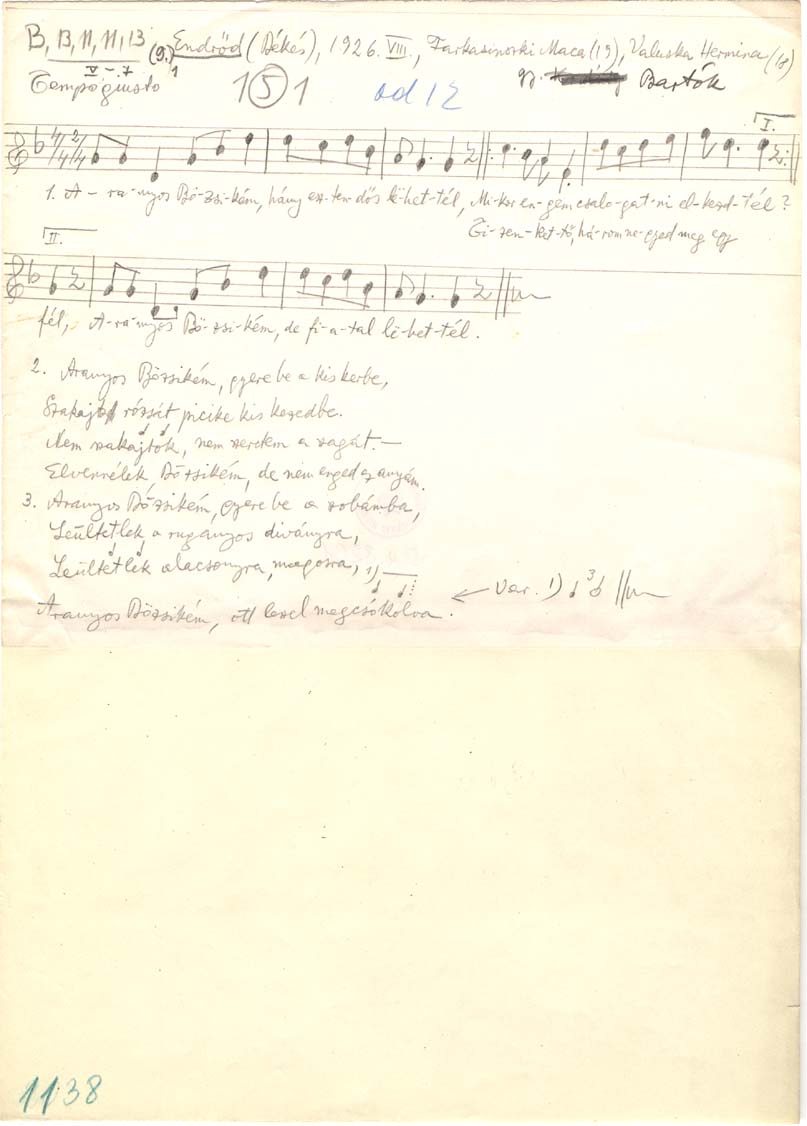 B, 13, 11, 11, 13 (9.) Endrőd (Békés), 1926. VIII., Farkasinszki Maca (19), Valuska Hermina (18)
V – 7 1
Tempo giusto 1 5 1 od 12 gy. Bartók
4/4 2/4 I.
1. A-ra-nyos Bö-zsi-kém, hány esz-ten-dős lë-het-tél, Mi-kor en-gem csalo-gat-ni el-kezd-tél?
Ti-zen-ket-tő, há-rom ne-gyed meg egy
II.
fél, A-ra-nyos Bö-zsi-kém, de fi-a-tal lë-het-tél.
2. Aranyos Bözsikém, gyere be a kis kerbe,
Szakajts rózsát picike kis kezedbe.
Nem szakajtok, nem szeretem a szagát. –
Elvennélek, Bözsikém, de nem enged az anyám.
3. Aranyos Bözsikém, gyere be a szobámba,
Leültetlek a ruganyos díványra,
Leültetlek alacsonyra, magosra, 1)
Aranyos Bözsikém, ott leszel megcsókolva.
Var. 1) 3
1138